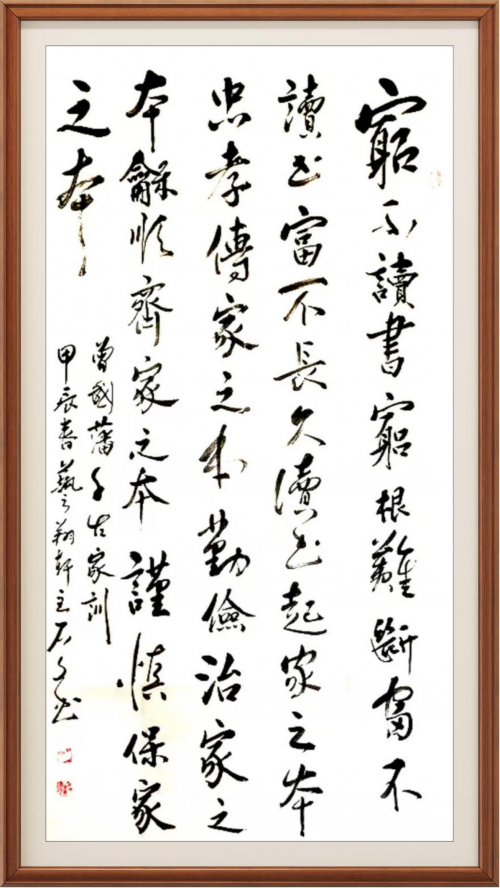 窮不讀書窮根難斷富不
讀書富不長久讀書起家之本
忠孝傳家之本勤儉治家之
本龢順齊家之本謹慎保家
之本
曾國藩千古家訓
甲辰春藝翔軒主石文書